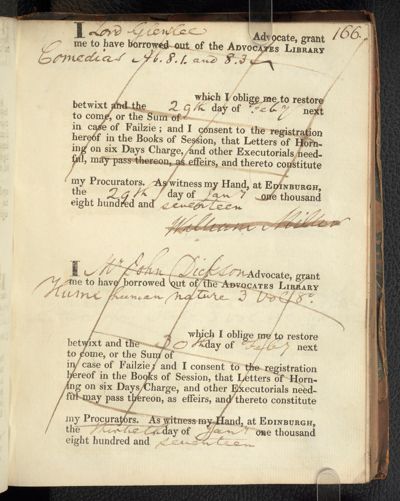 166.
I Lord Glenlee Advocate, grant
me to have borrowed out of the ADVOCATES LIBRARY
Comedias Ab. 8. 1. and 8. 3
which I oblige me to restore
betwixt and the 29th day of Feby next
to come, or the Sum of
in case of Failzie; and I consent to the registration
hereof in the Books of Session, that Letters of Horn-
ing on six Days Charge, and other Executorials need-
ful, may pass thereon, as effeirs, and thereto constitute
my Procurators. As witness my Hand, at EDINBURGH,
the 29th day of Jany one thousand
eight hundred and seventeen
William Miller
I Mr John Dickson Advocate, grant
me to have borrowed out of the ADVOCATES LIBRARY
Hume human nature 3 vol 8o.
which I oblige me to restore
betwixt and the 30th day of Feby next
to come, or the Sum of
in case of Failzie; and I consent to the registration
hereof in the Books of Session, that Letters of Horn-
ing on six Days Charge, and other Executorials need-
ful may pass thereon, as effeirs, and thereto constitute
my Procurators. As witness my Hand, at EDINBURGH,
the thirtieth day of Jany one thousand
eight hundred and seventeen